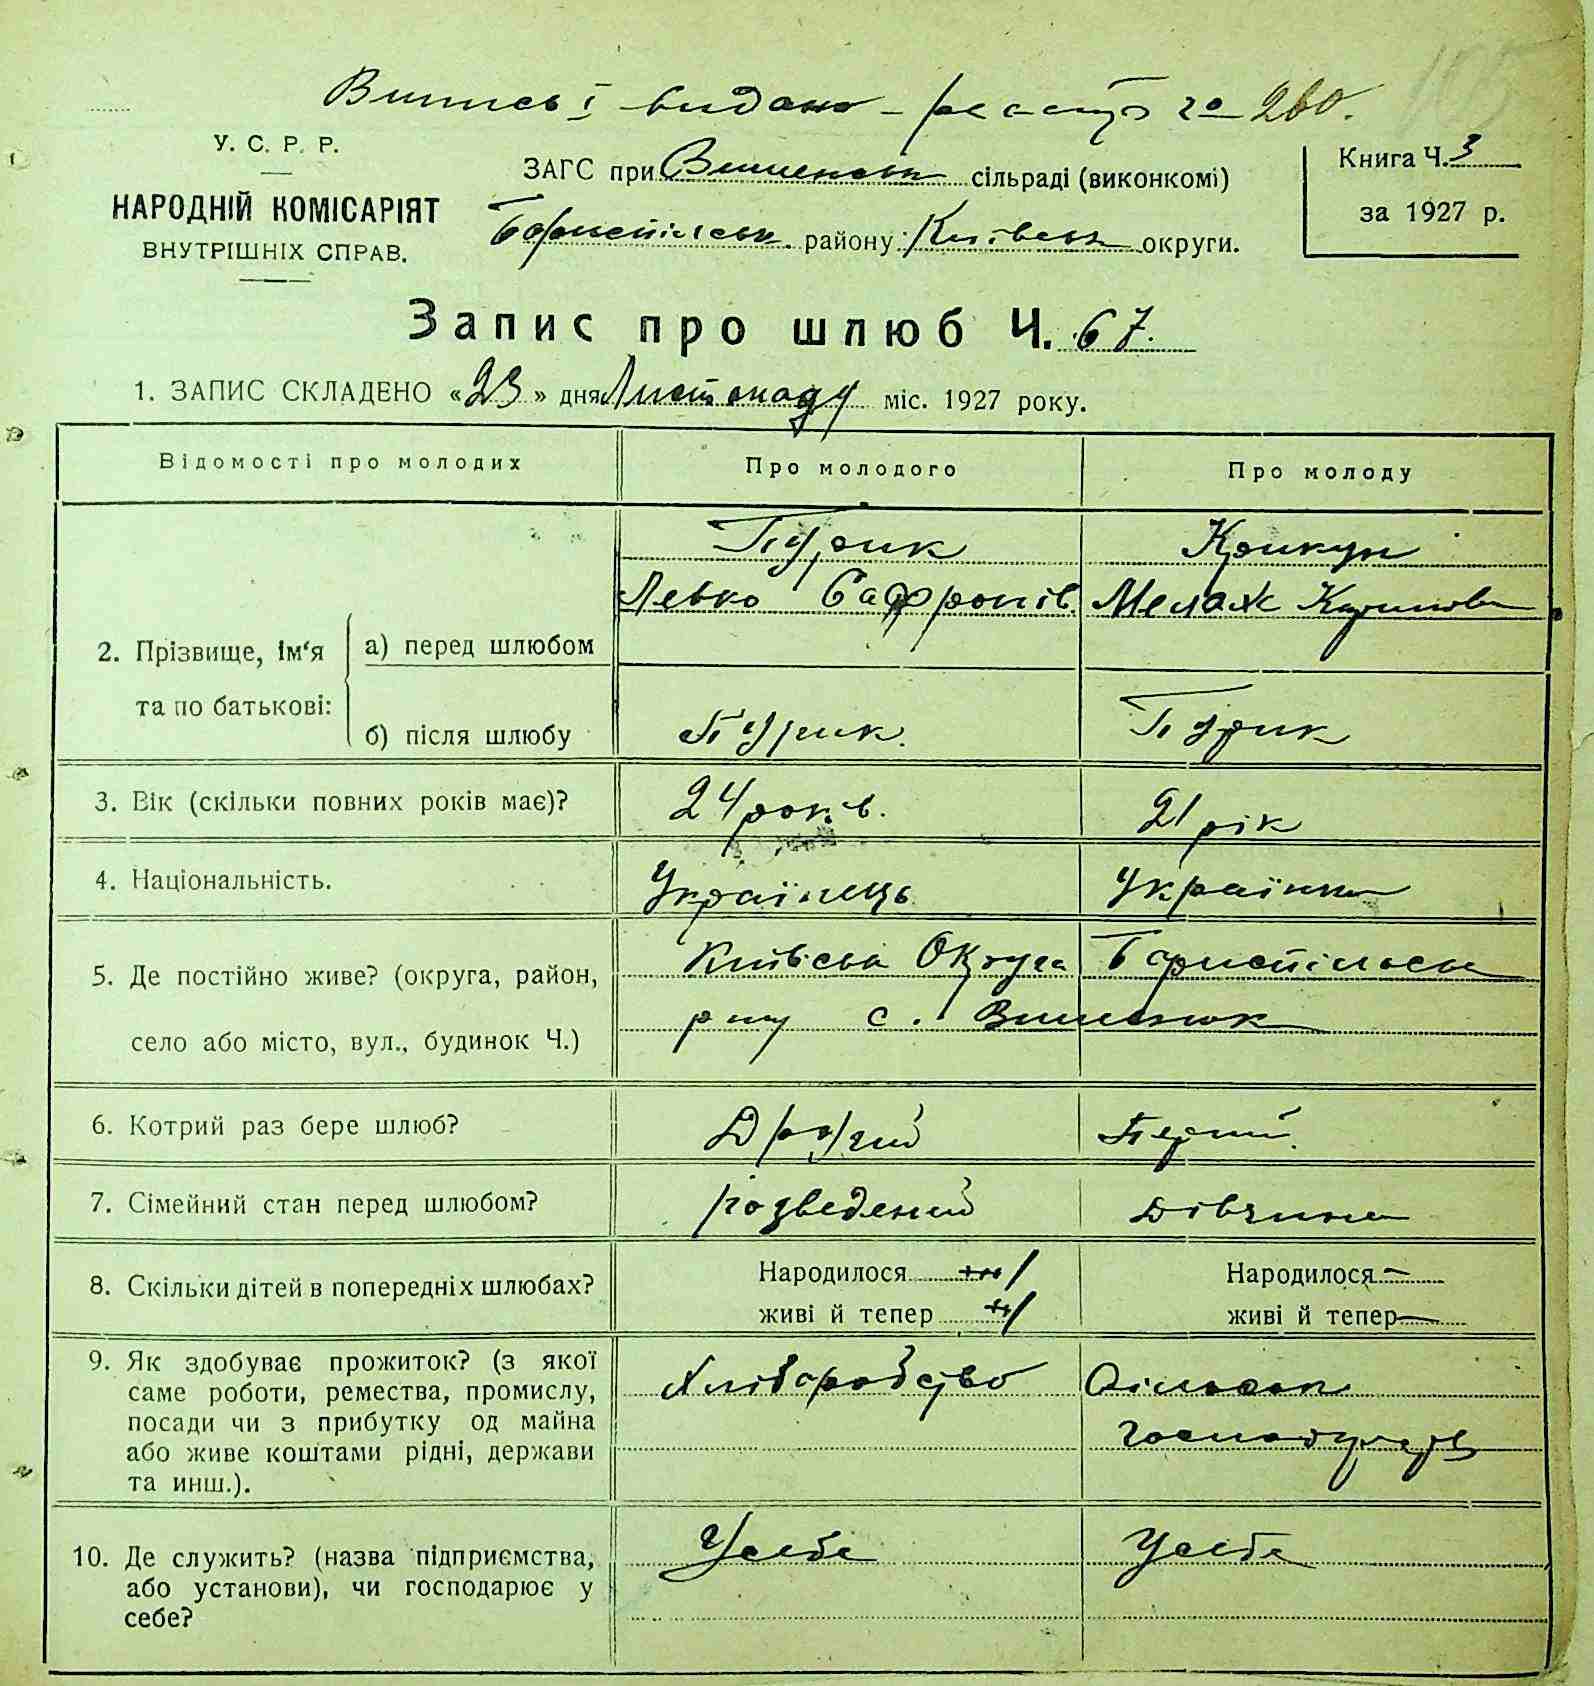 Випись і видано - реєстр за 260.
105
У. С. Р. Р.
НАРОДНІЙ КОМІСАРІЯТ
ВНУТРІШНІХ СПРАВ.
ЗАГС при Вишенськ сільраді (виконкомі)
Бориспільськ району Київськ округи.
Книга Ч. 3
за 1927 р.
Запис про шлюб Ч. 67.
1. ЗАПИС СКЛАДЕНО «23» дня Листопаду міс. 1927 року.
Відомості про молодих
Про молодого
Про молоду
2. Прізвище, ім'я та по батькові:
а) перед шлюбом
Пурик
Левко Сафронів
Крикун
Мелаж
б) після шлюбу
Пурик.
Пурик
3. Вік (скільки повних років має)?
24 років.
21 рік
4. Національність.
Українець
Українка
5. Де постійно живе? (округа, район,
село або місто, вул., будинок Ч.)
Київська Округа Бориспільськ
р-ну с. Вишеньок
6. Котрий раз бере шлюб?
Другий
Перший.
7. Сімейний стан перед шлюбом?
розведений
Дівчина
8. Скільки дітей в попередніх шлюбах?
Народилося 1
живі й тепер 1
Народилося —
живі й тепер —
9. Як здобуває прожиток? (з якої
саме роботи, ремества, промислу,
посади чи з прибутку од майна
або живе коштами рідні, держави
та инш.).
Хліборобство
Сільськ
господарств
10. Де служить? (назва підприємства,
або установи), чи господарює у
себе?
У себе
У себе